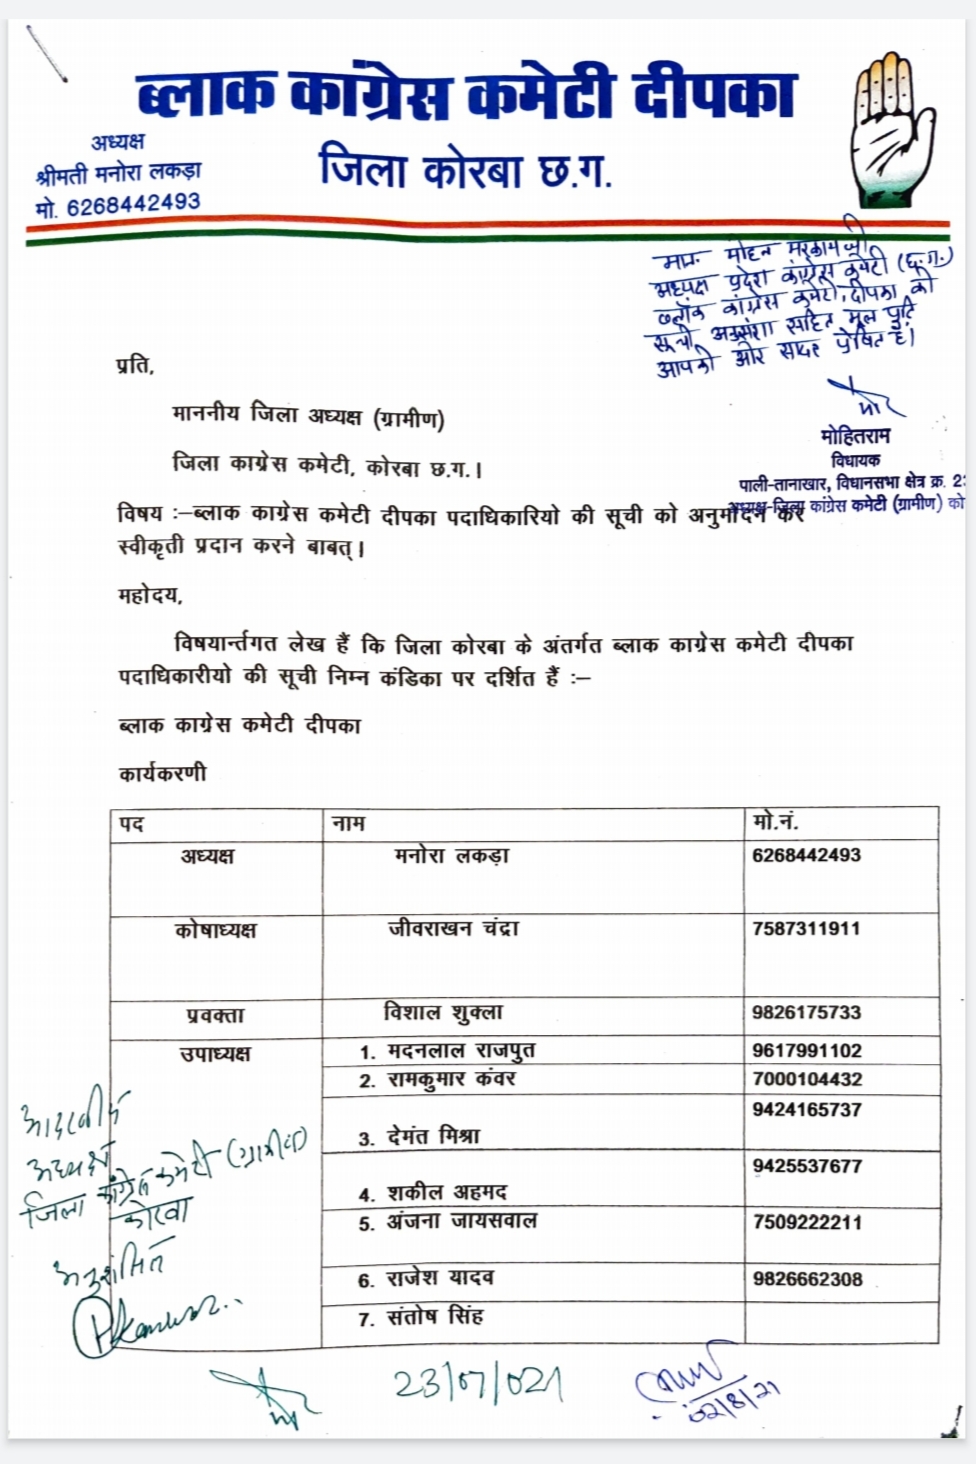 ब्लाक कांग्रेस कमेटी दीपका
जिला कोरबा छ.ग.
अध्यक्ष
श्रीमती मनोरा लकड़ा
मो. 6268442493
मा. मोहन मरकाम जी
अध्यक्ष प्रदेश कांग्रेस कमेटी (छ.ग.)
ब्लॉक कांग्रेस कमेटी, दीपका की
सूची अनुसंशा सहित मूल प्रति
आपकी ओर सादर प्रेषित है।
मोहितराम
विधायक
पाली-तानाखार, विधानसभा क्षेत्र क्र. 23
अध्यक्ष-जिला कांग्रेस कमेटी (ग्रामीण) को
प्रति,
माननीय जिला अध्यक्ष (ग्रामीण)
जिला काग्रेस कमेटी, कोरबा छ.ग.।
विषय :–ब्लाक काग्रेस कमेटी दीपका पदाधिकारियो की सूची को अनुमोदन कर
स्वीकृती प्रदान करने बाबत्।
महोदय,
विषयार्न्तगत लेख हैं कि जिला कोरबा के अंतर्गत ब्लाक काग्रेस कमेटी दीपका
पदाधिकारीयो की सूची निम्न कंडिका पर दर्शित हैं :–
ब्लाक काग्रेस कमेटी दीपका
कार्यकरणी
पद नाम मो.नं.
अध्यक्ष मनोरा लकड़ा 6268442493
कोषाध्यक्ष जीवराखन चंद्रा 7587311911
प्रवक्ता विशाल शुक्ला 9826175733
उपाध्यक्ष 1. मदनलाल राजपुत 9617991102
2. रामकुमार कंवर 7000104432
3. देमंत मिश्रा 9424165737
4. शकील अहमद 9425537677
5. अंजना जायसवाल 7509222211
6. राजेश यादव 9826662308
7. संतोष सिंह
आदरणीय
अध्यक्ष
जिला कांग्रेस कमेटी (ग्रामीण)
कोरबा
अनुशंसित
23/07/021